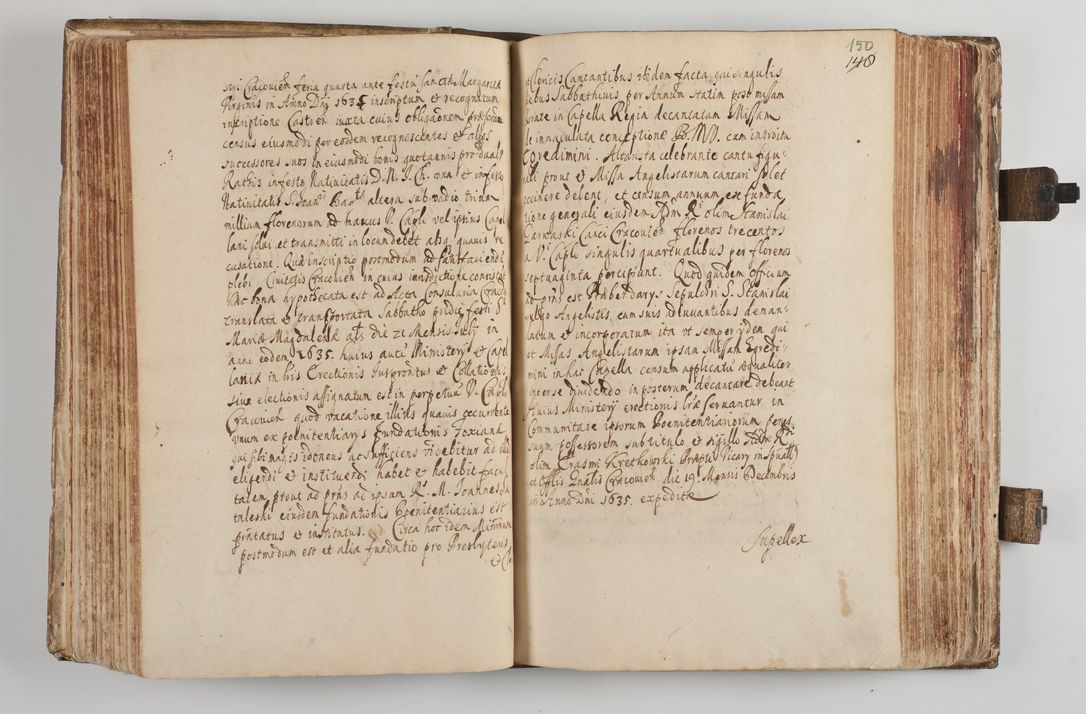 Cracovien feria quarta ante festũ Sanctae Margaritae
Virginis in Anno Dnj 1635 inscriptum et recognitum
inscriptione Castren iuxta cuius obligãonem
census eiusmodi per eosdem recognoscentes et alios
successores suos in eiusmodi bonis quotannis pro duabꝫ
Ratis in festo Natiuitatis D. N. J. Ch. una et in festo
Natiuitatis S. Joan̄ Bapᵗᵃ altera sub vadio trium
millium florenorum ad manus V. Capli vel ipsius Capel
lani solui et transmitti in locum debet absqꝫ quauis re
cusatione. Quae inscriptio postmodum ad
plebi Ciuitatis Cracouien in cuius iurisdictione consistit
bona hypothecata est ad Acta Consularia Craco
translata et transportata Sabbatho festi S.
Mariae Magdalenae als die 21 Mensis July in
anno eodem 1635. huius autẽ Ministery et Capel
laniae in bris Erectionis Collationis
siue electionis assignatum est in perpetuũ V. Caplo
Cracouien quod vacatione illius quauis occurrente
vnum ex poenitentiarys fundationis
qui sibi magis idoneus ac sufficiens videbitur ad id
eligendi et instituendi habet et habebit facul
tatem prout ad pñs ad ipsam R. M. Joannes
taleski eiusdem fundationis Poenitentiarius est
pntatus et institutus. Circa hoc idem
postmodum est et alia fundatio pro Presbyteris
150
148
Clericis Cantantibus ibidem facta, qui singulis
diebus Sabbathiuis per Annum statim post missam
in Capella Regia decantatam Missam
de immaculata conceptione B. M. V. cum introitu
Egredimini. Altarista celebrante cantu figu-
rali prout et Missa Angelistarum cantari solet
accinere debent, et censum annuum ex funda
tione generali eiusdem Adm R. olim Stanislai
Canci Cracouien florenos trecentos
a V. Caplo singulis quartualibus per florenos
septuaginta percipiunt. Quod quidem officium
ad pñs est Praebendarys Sepulchri S. Stanislai
Angelistis, cum suis adiuuantibus deman-
datum et incorporatum ita vt semper ydem qui
et Missas Angelistarum ipsam Missam Egredi-
mini in hac Capella censum applicatũ aequaliter
inter se diuidendo in posterum decantare debeant
Huius Ministery erectionis lrae seruantur in
Communitate ipsorum Poenitentiariorum penes
suum possessorem sub titulo et sigillo Adm R.
olim Erasmi Kretkowski Praepti Vicary in Spualibꝫ
et Offlis Gnalis Cracouien die 19 Mensis Decembris
in Anno Dni 1635. expeditae
Supellex